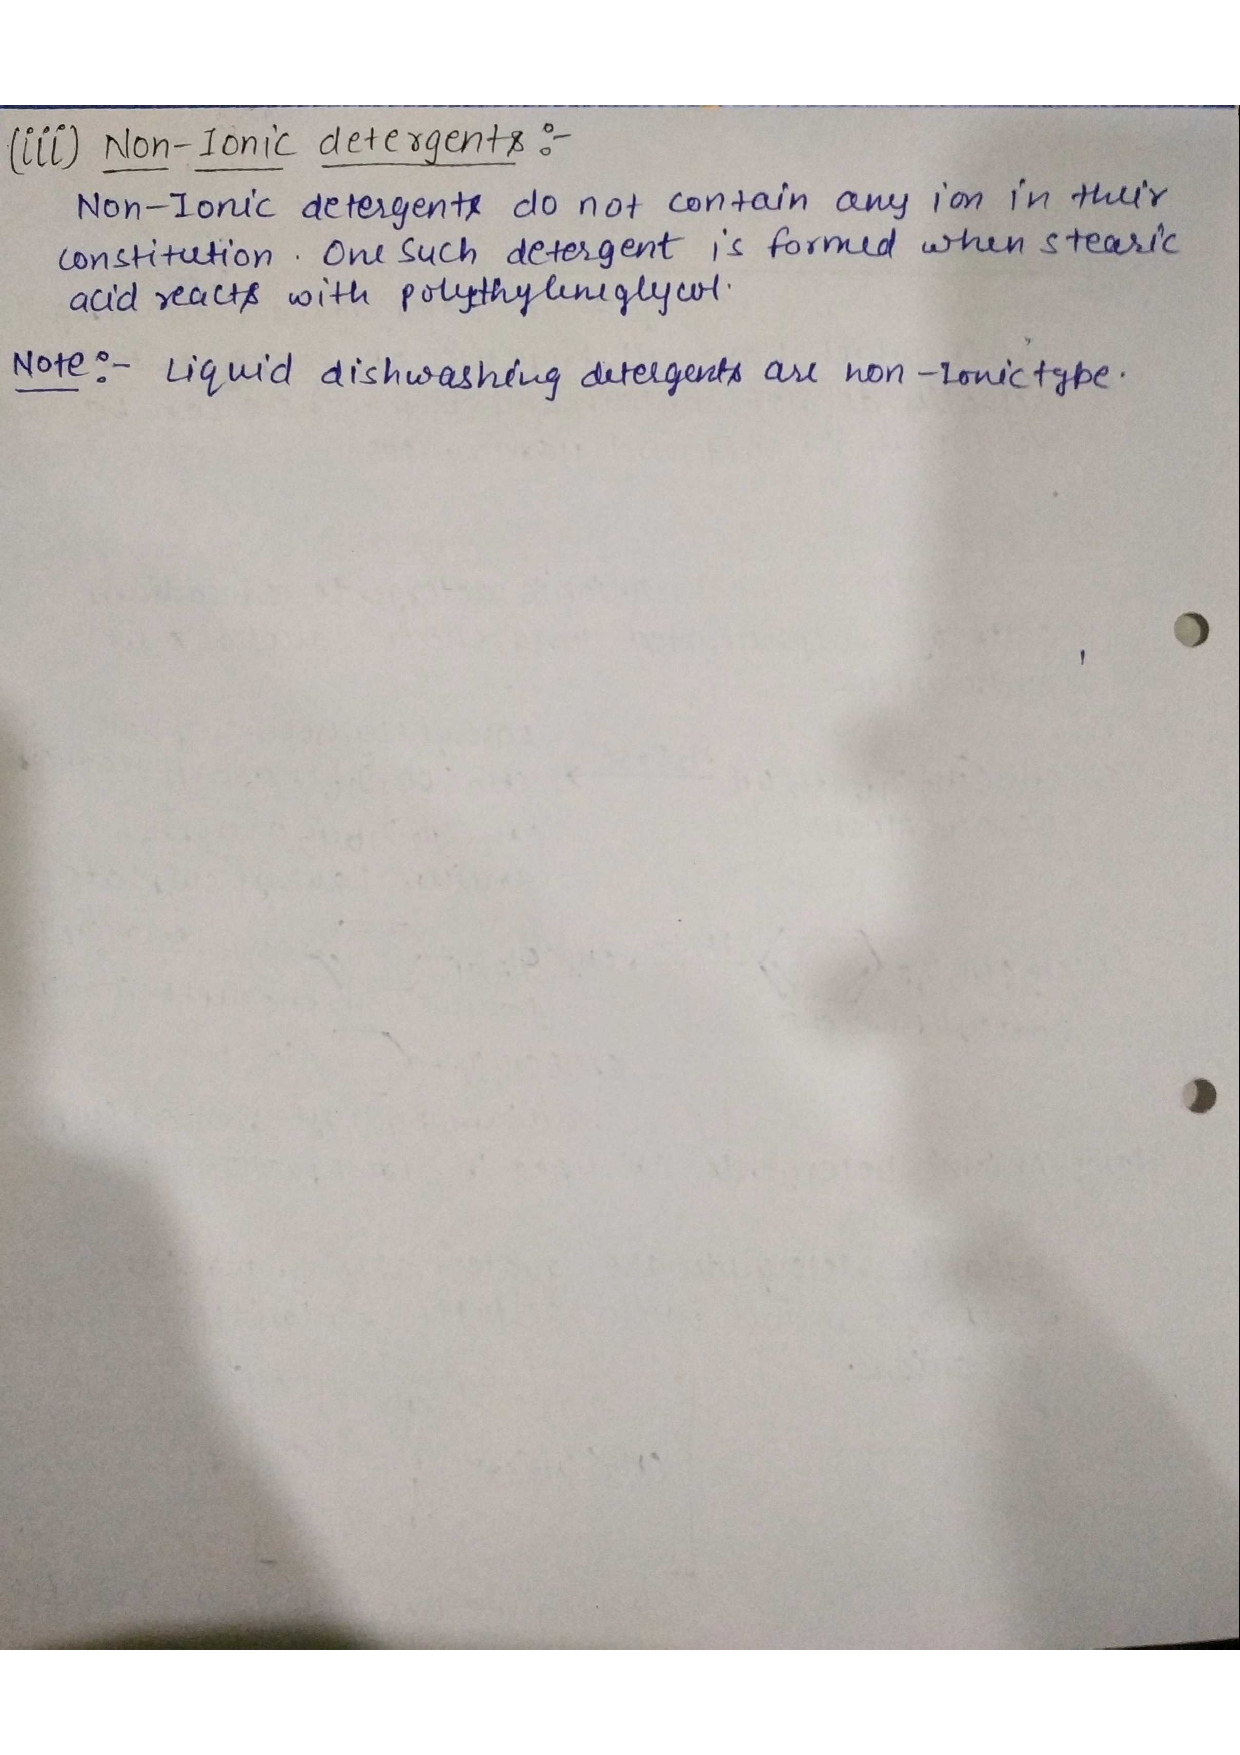 (iii) Non-Ionic detergents :-
Non-Ionic detergents do not contain any ion in their
constitution. One such detergent is formed when stearic
acid reacts with polythyleneglycol.
Note :- Liquid dishwashing detergents are non-Ionic type.